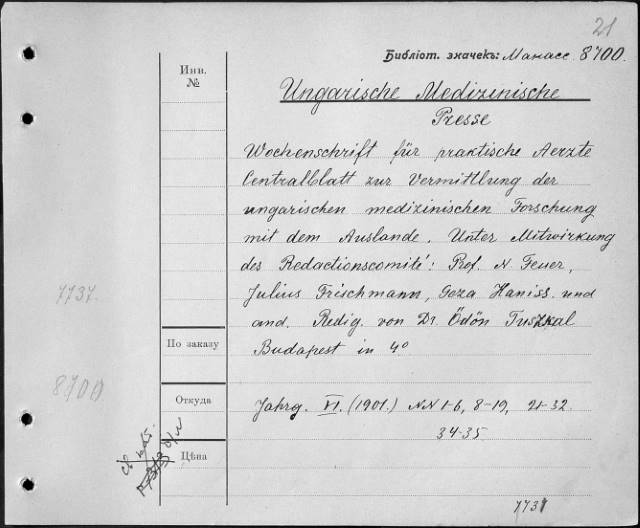 21
Библіот. значекъ: Манасс. 8700.
Инв.
№
Ungarische Medizinische
Presse
Wochenschrift für praktische Aerzte
Centralblatt zur Vermittlung der
ungarischen medizinischen Forschung
mit dem Auslande. Unter Mitwirkung
des Redactionscomité: Prof. N. Feuer,
Julius Frischmann, Geza Haniss. und
and. Redig. von Dr. Ödön Tuszkal
Budapest in 4°
7737.
По заказу
8700
Откуда
Jahrg. VI. (1901.) NN 1-6, 8-19, 21-32
34-35
Цѣна
7737